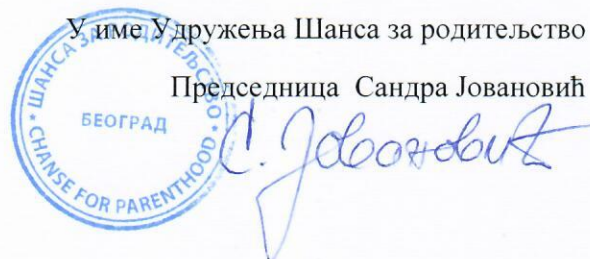 У име Удружења Шанса за родитељство
Председница Сандра Јовановић
* ШАНСА ЗА РОДИТЕЉСТВО *
БЕОГРАД
CHANSE FOR PARENTHOOD
С. Јовановић